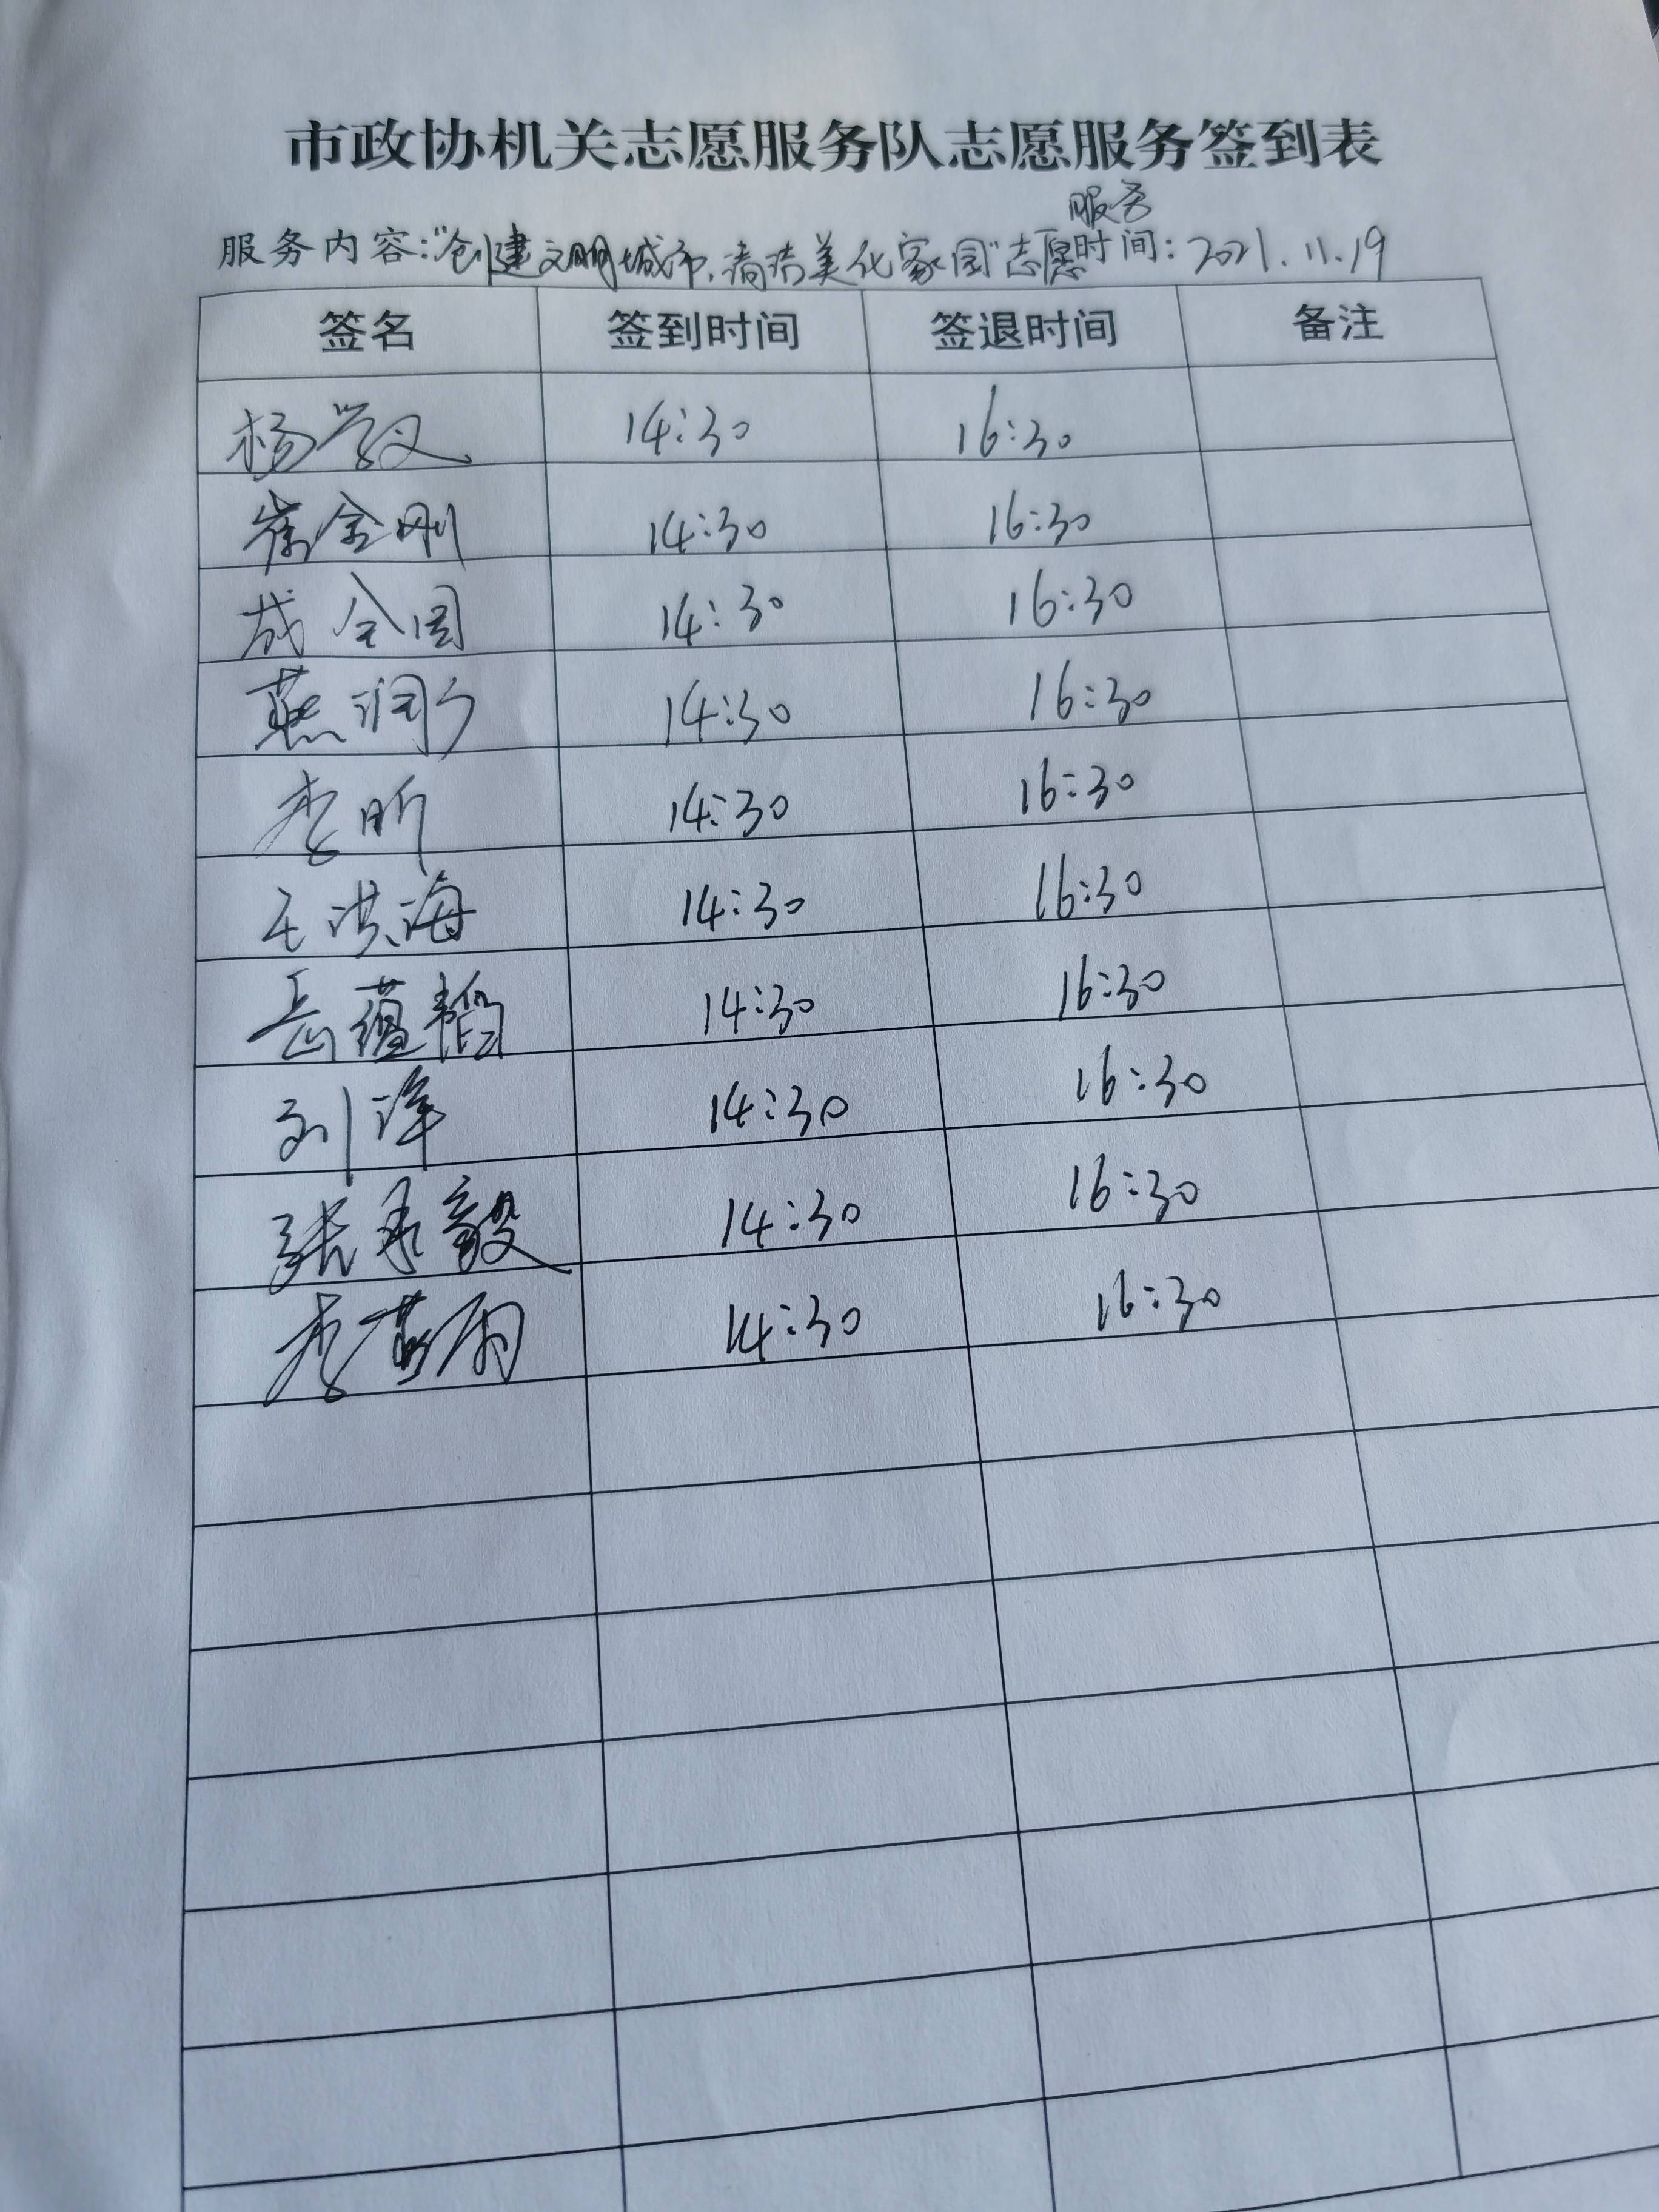 市政协机关志愿服务队志愿服务签到表
服务
服务内容:"创建文明城市,清洁美化家园"志愿时间: 2021.11.19
签名 签到时间 签退时间 备注
杨学文 14:30 16:30
崔金刚 14:30 16:30
成全国 14:30 16:30
燕润 14:30 16:30
李昕 14:30 16:30
王洪海 14:30 16:30
岳蕴韬 14:30 16:30
刘洋 14:30 16:30
张承毅 14:30 16:30
李 14:30 16:30